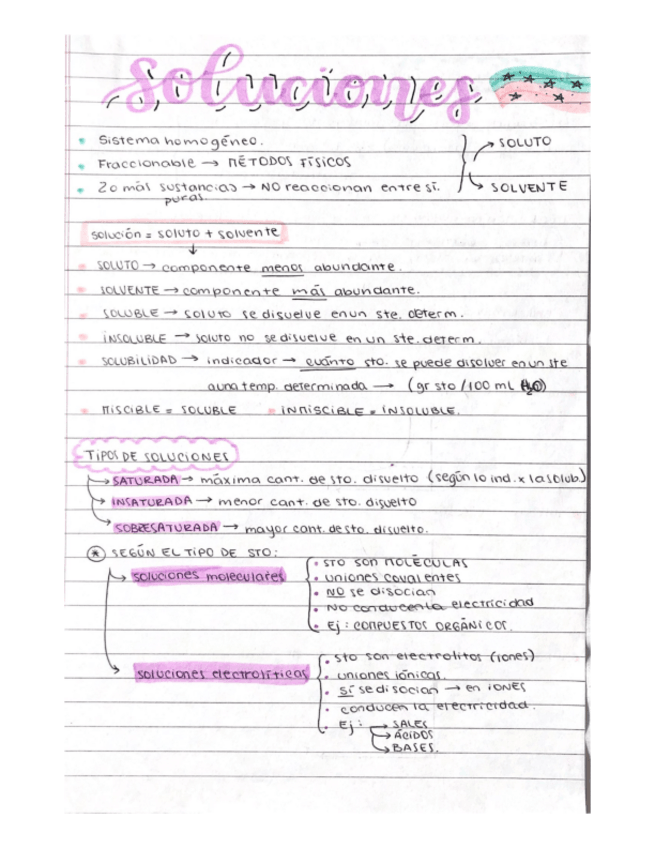 Soluciones
• Sistema homogéneo.
• Fraccionable → MÉTODOS FÍSICOS
• 2 o más sustancias → NO reaccionan entre sí.
puras.
→ SOLUTO
→ SOLVENTE
solución = soluto + solvente
SOLUTO → componente menos abundante.
SOLVENTE → componente más abundante.
SOLUBLE → soluto se disuelve en un ste. determ.
INSOLUBLE → soluto no se disuelve en un ste. determ.
SOLUBILIDAD → indicador → cuánto sto. se puede disolver en un ste
a una temp. determinada → (gr sto / 100 mL H₂O)
MISCIBLE = SOLUBLE • INMISCIBLE = INSOLUBLE.
TIPOS DE SOLUCIONES
→ SATURADA → máxima cant. de sto. disuelto (según lo ind. x la solub.)
→ INSATURADA → menor cant. de sto. disuelto
→ SOBRESATURADA → mayor cant. de sto. disuelto.
* SEGÚN EL TIPO DE STO:
→ soluciones moleculares
• STO SON MOLÉCULAS
• uniones covalentes
• NO se disocian
• NO conducen la electricidad
• Ej: COMPUESTOS ORGÁNICOS.
→ soluciones electrolíticas
• sto son electrolitos (iones)
• uniones iónicas.
• SÍ se disocian → en IONES
• conducen la electricidad.
• Ej: → SALES
→ ÁCIDOS
→ BASES.